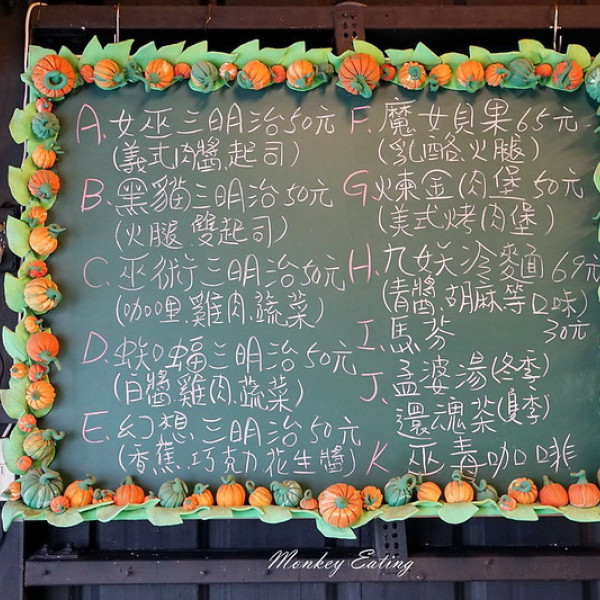 A. 女巫三明治50元
(義式肉醬.起司)
B. 黑貓三明治50元
(火腿.雙起司)
C. 巫術三明治50元
(咖哩.雞肉.蔬菜)
D. 蝙蝠三明治50元
(白醬雞肉.蔬菜)
E. 幻想三明治50元
(香蕉.巧克力花生醬)
F. 魔女貝果65元
(乳酪.火腿)
G 煉金(肉堡50元
(美式烤肉堡)
H. 九妖冷麵 69元
(青醬.胡麻等口味)
I. 馬芬 30元
J. 孟婆湯(冬季)
還魂茶(夏季)
K 巫毒咖啡
Monkey Eating